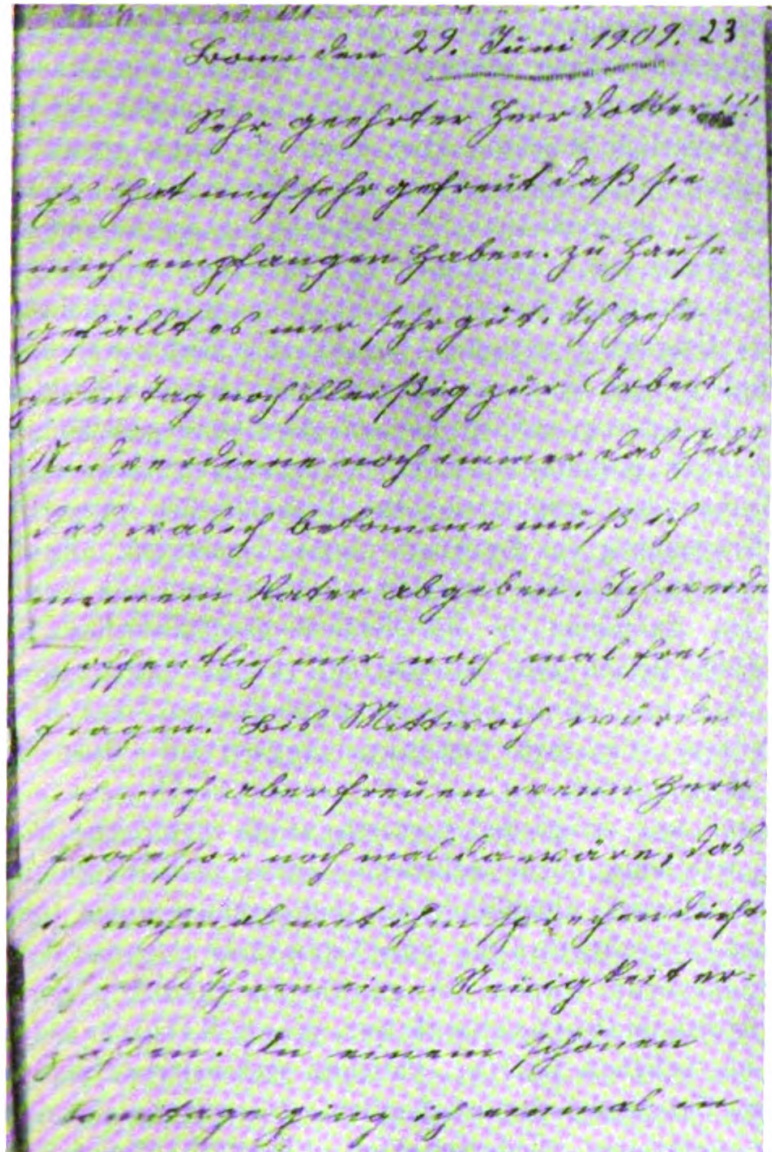 Bonn den 29. Juni 1909. 23
Sehr geehrter Herr Dokter!!!
Es hat mich sehr gefreut daß sie
mich empfangen haben. zu Hause
gefällt es mir sehr gut. Ich gehe
jeden Tag noch fleißig zur Arbeit.
Und verdiene noch immer das Geld.
das was ich bekomme muß ich
meinem Vater abgeben. Ich werde
hoffentlich mir noch mal frei
fragen. Bis Mittwoch würde
ich mich aber freuen wenn Herr
Professor noch mal da wäre, das
ich nochmal mit ihm sprechen
Ich will Ihnen eine Neuigkeit er-
zählen. An einem schönen
Sonntage ging ich einmal in